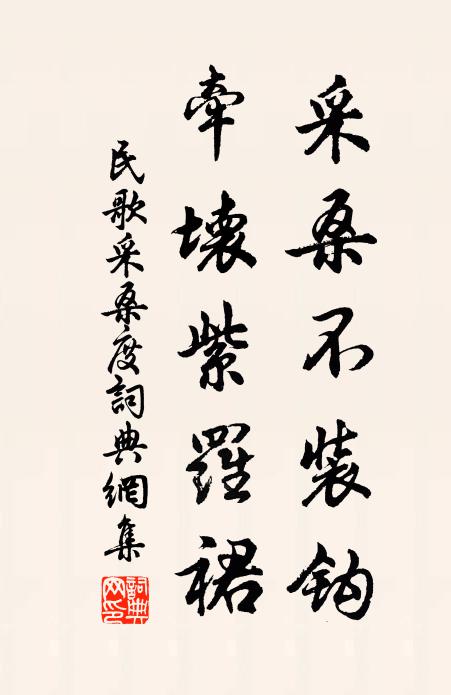 采桑不装鈎
牵壞紫羅裙
民歌采桑度詞典網集
詞典网印